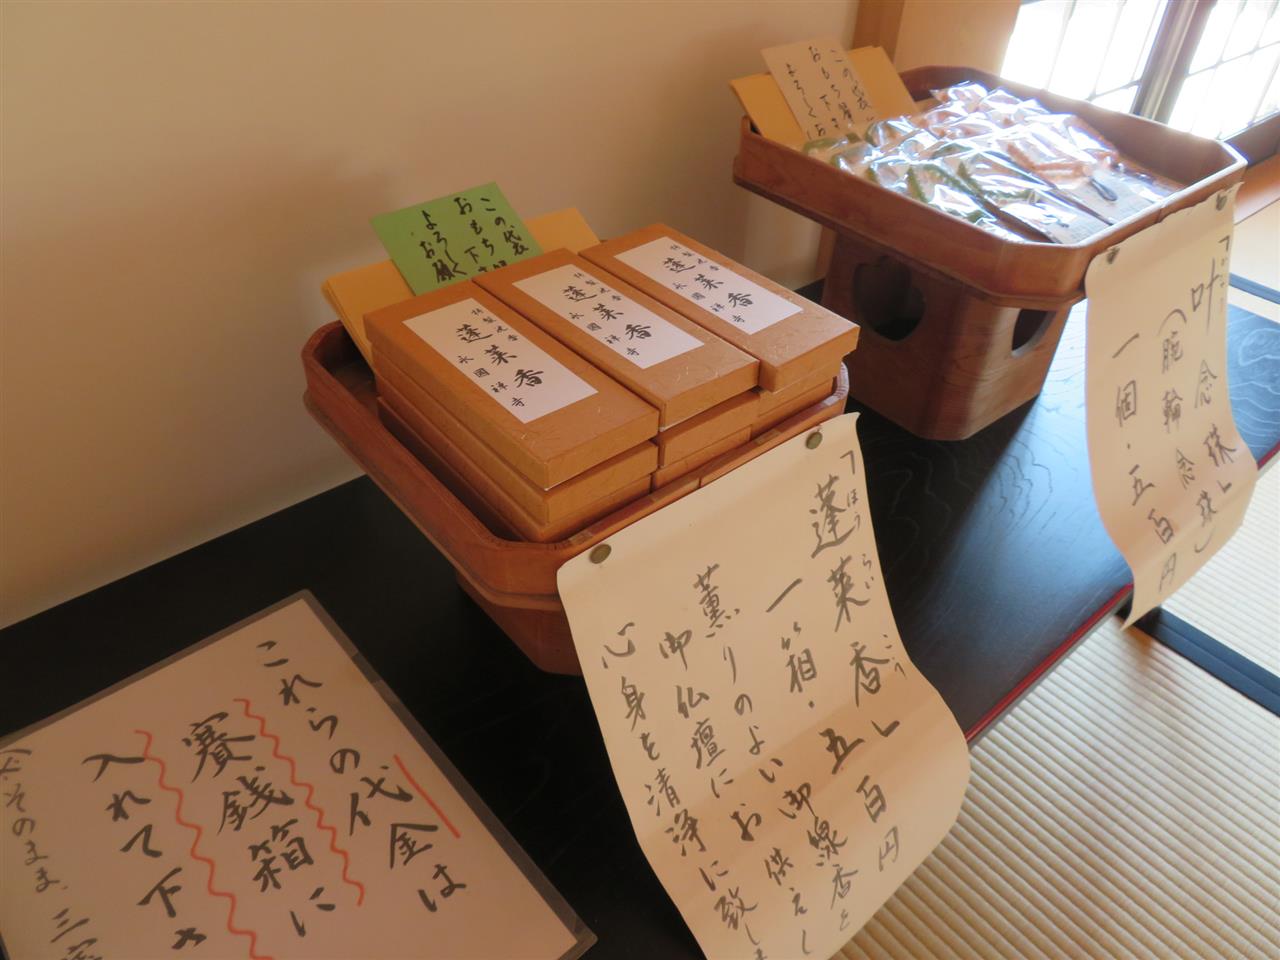 この代衣
おもち下さ
よろしく
お願
この代衣
おもち下さ
よろしくお
特製香
蓬莱香
永國禅寺
蓬莱香
永國禅寺
蓬莱香
永國禅寺
「叶念珠」
(腕輪念珠)
一個・五百円
「蓬莱香」
ほうらいこう
一箱・五百円
薫りのよい御線香を
御仏壇にお供えし
心身を清浄に致しま
これらの代金は
賽銭箱に
入れて下さ
そのまま、三宝